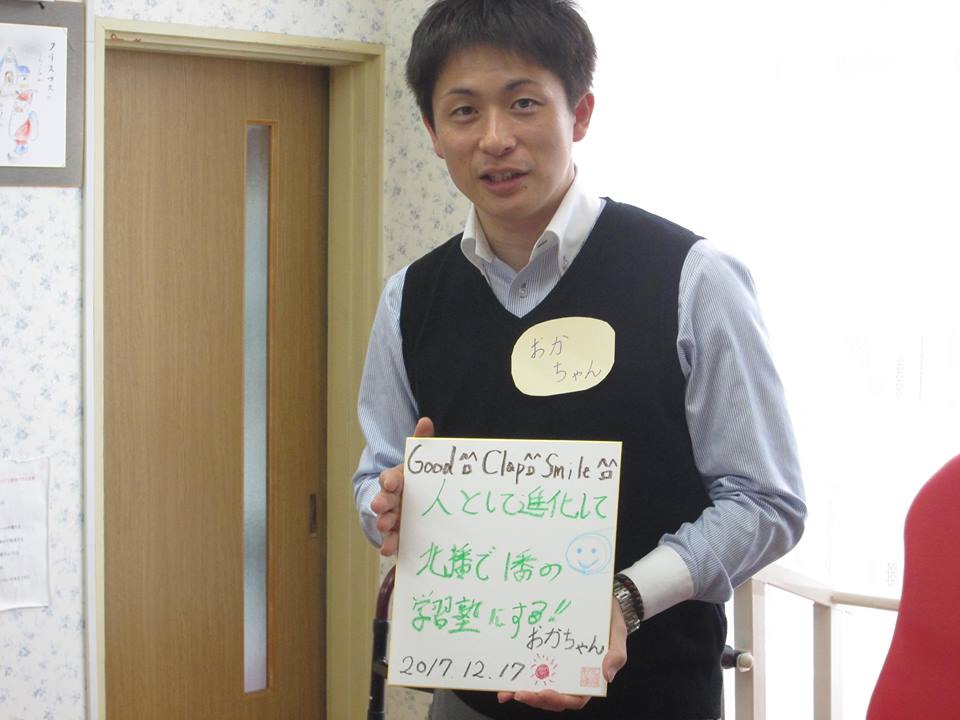 クリスマス
おか
ちゃん
Good Clap Smile
人として進化して
北播で1番の
学習塾にする!!
おかちゃん
2017.12.17